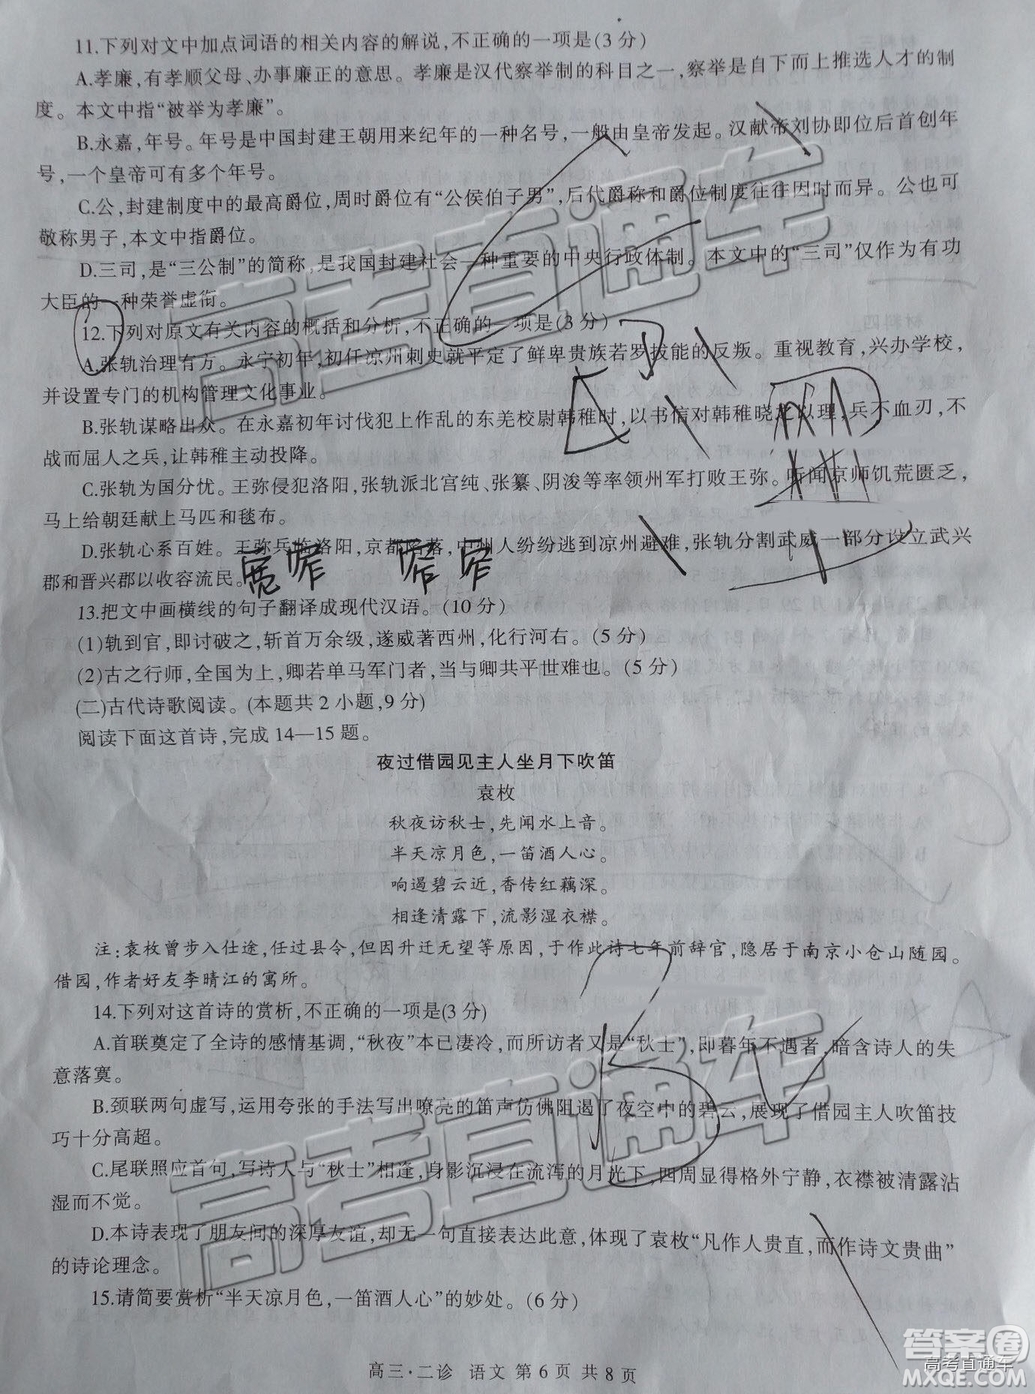 11.下列对文中加点词语的相关内容的解说,不正确的一项是(3 分)
A.孝廉,有孝顺父母、办事廉正的意思。孝廉是汉代察举制的科目之一,察举是自下而上推选人才的制
度。本文中指“被举为孝廉”。
B.永嘉,年号。年号是中国封建王朝用来纪年的一种名号,一般由皇帝发起。汉献帝刘协即位后首创年
号,一个皇帝可有多个年号。
C.公,封建制度中的最高爵位,周时爵位有“公侯伯子男”,后代爵称和爵位制度往往因时而异。公也可
敬称男子,本文中指爵位。
D.三司,是“三公制”的简称,是我国封建社会一种重要的中央行政体制。本文中的“三司”仅作为有功
大臣的一种荣誉虚衔。
12.下列对原文有关内容的概括和分析,不正确的一项是(3 分)
A.张轨治理有方。永宁初年,初任凉州刺史就平定了鲜卑贵族若罗拔能的反叛。重视教育,兴办学校,
并设置专门的机构管理文化事业。
B.张轨谋略出众。在永嘉初年讨伐犯上作乱的东羌校尉韩稚时,以书信对韩稚晓之以理,兵不血刃,不
战而屈人之兵,让韩稚主动投降。
C.张轨为国分忧。王弥侵犯洛阳,张轨派北宫纯、张纂、阴浚等率领州军打败王弥。听闻京师饥荒匮乏,
马上给朝廷献上马匹和毯布。
D.张轨心系百姓。王弥兵临洛阳,京都陷落,中州人纷纷逃到凉州避难,张轨分割武威一部分设立武兴
郡和晋兴郡以收容流民。
13.把文中画横线的句子翻译成现代汉语。(10 分)
(1)轨到官,即讨破之,斩首万余级,遂威著西州,化行河右。(5 分)
(2)古之行师,全国为上,卿若单马军门者,当与卿共平世难也。(5 分)
(二)古代诗歌阅读。(本题共 2 小题,9 分)
阅读下面这首诗,完成 14—15 题。
夜过借园见主人坐月下吹笛
袁枚
秋夜访秋士,先闻水上音。
半天凉月色,一笛酒人心。
响遏碧云近,香传红藕深。
相逢清露下,流影湿衣襟。
注:袁枚曾步入仕途,任过县令,但因升迁无望等原因,于作此诗七年前辞官,隐居于南京小仓山随园。
借园,作者好友李晴江的寓所。
14.下列对这首诗的赏析,不正确的一项是(3 分)
A.首联奠定了全诗的感情基调,“秋夜”本已凄冷,而所访者又是“秋士”,即暮年不遇者,暗含诗人的失
意落寞。
B.颈联两句虚写,运用夸张的手法写出嘹亮的笛声仿佛阻遏了夜空中的碧云,展现了借园主人吹笛技
巧十分高超。
C.尾联照应首句,写诗人与“秋士”相逢,身影沉浸在流泻的月光下,四周显得格外宁静,衣襟被清露沾
湿而不觉。
D.本诗表现了朋友间的深厚友谊,却无一句直接表达此意,体现了袁枚“凡作人贵直,而作诗文贵曲”
的诗论理念。
15.请简要赏析“半天凉月色,一笛酒人心”的妙处。(6 分)
高三·二诊 语文 第 6 页 共 8 页
高考直通车
高考直通车
答案圈
高考直通车
MXQE.COM